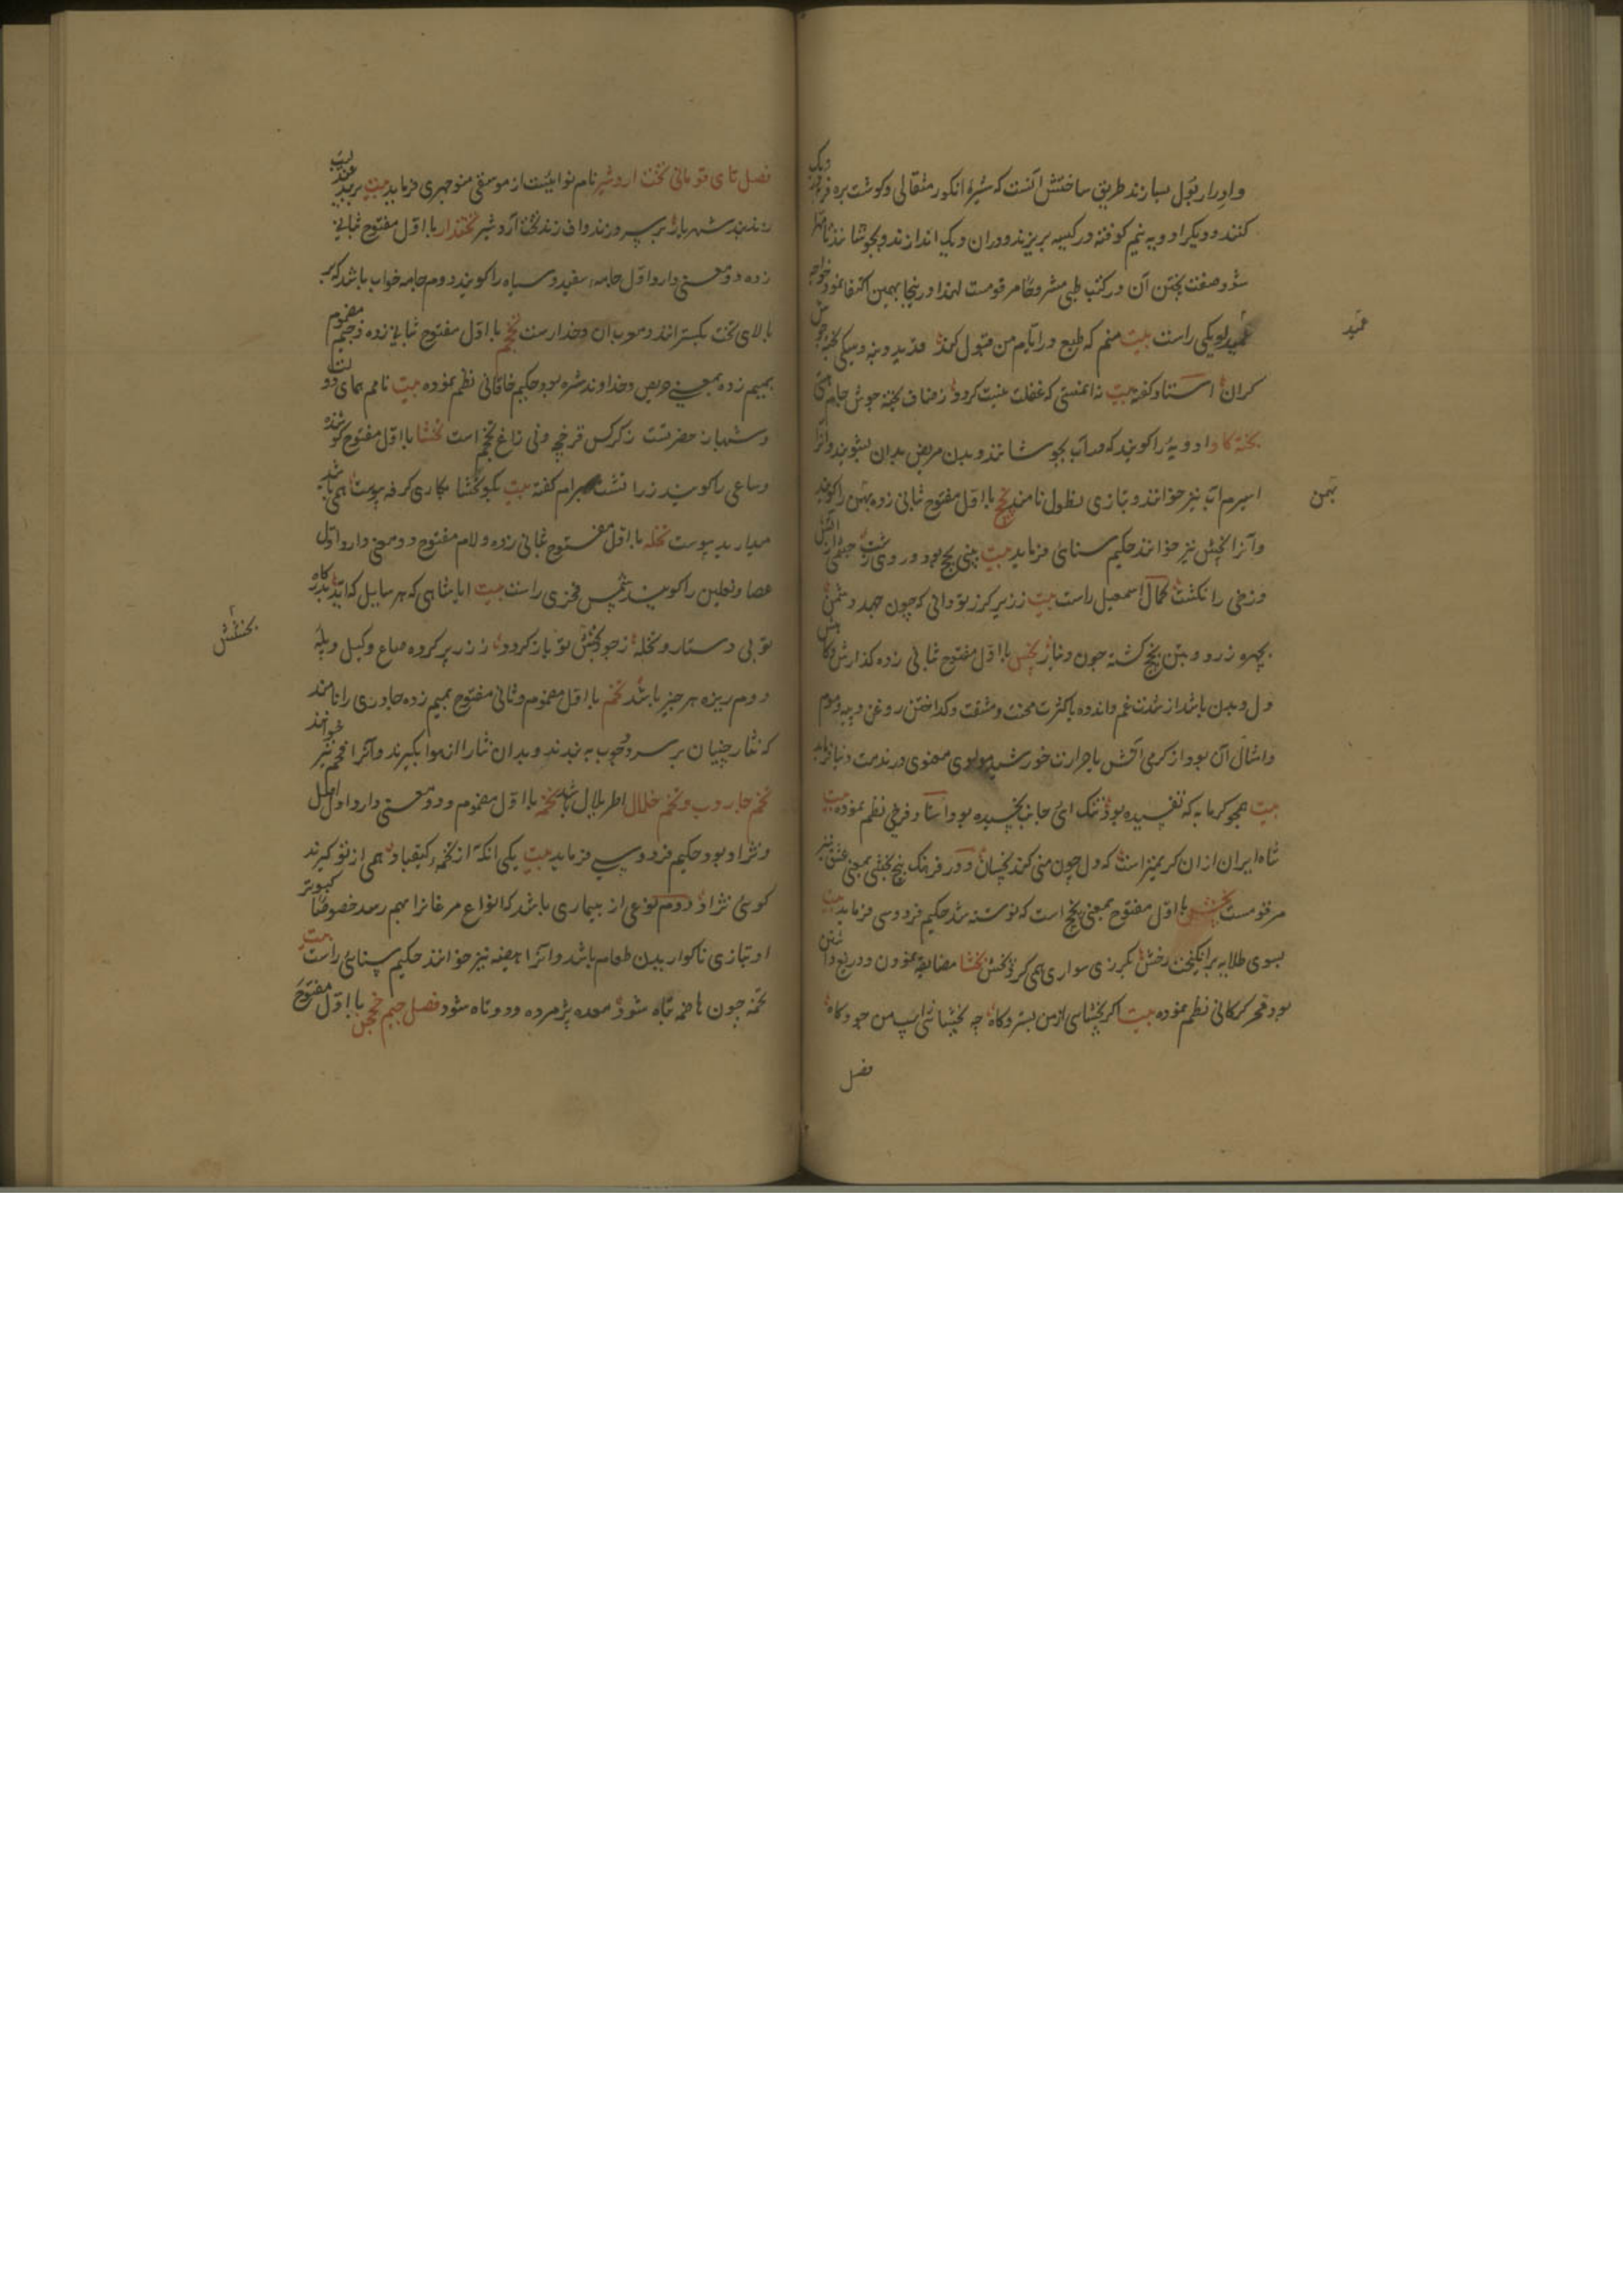 و ادرار بول بسازند طریق ساختنش آنست که شیره انکور مثقالی و کوشت بره فربه در دیک
کنند و دیکر ادویه نیم کوفته در کیسه بریزند و در ان دیک اندازند و بجوشانند تا مهرا
شود و صفت پختن آن در کتب طبی مشروحا مرقومست لهذا درینجا بهمین اکتفا نمود خواجه
عمید لویکی راست بیت منم که طبع در ایام من قبول کند قدید و پنه و سیکی پخته جوش
کران استاد کفته بیت نه انمستی که غفلت عیبت کردد ز صاف پخته جوش جام
پخته کاو ادویه را کویند که در آب بجوشانند و بدن مریض بدان بشویند و آنرا
اسپرم آب نیز خوانند و بتازی نطول نامند پخچ با اول مفتوح بثانی زده پهن را کویند
و آنرا پخش نیز خوانند حکیم سنائی فرماید بیت بینی پخچ بود و روی زشت چشمی از آتش
و زخی را نکشت کمال اسمعیل راست بیت ز زیر کرز تو دانی که چون جهد دشمن
بچهره زرد و بتن پخچ کشته چون دینار پخس با اول مفتوح بثانی زده کدازش و کاهش
دل و بدن باشد از شدت غم و اندوه یا کثرت محنت و مشقت و کداختن روغن و پیه و موم
و امثال آن بود از کرمی آتش یا حرارت خورشید مولوی معنوی در مذمت دنیا فرماید
بیت همچو کرمابه که تفسیده بود تنک ائی جانت پخسیده بود استاد فرخی نظم نموده بیت
شاه ایران ازان کریمتر است که دل چون منی کند پخسان و در فرهنک پنج بخشی بمعنی عشق نیز
مرقومست با اول مفتوح بمعنی پخچ است که نوشته شد حکیم فردوسی فرماید بیت
بسوی طلایه برانکیخت رخش بکرزی سواری همی کرد پخش بخشا مضایقه نمودن و دریغ داشتن
بود فخر کرکانی نظم نموده بیت اکر بخشای از من بستر و کاه چه بخشا از اسپ من جو و کاه
فصل
عمید
پهن
فصل تای فوقانی تخت اردشیر نام نوائیست از موسیقی منوچهری فرماید بیت بربند عندلیب
زند بند شهریار بر سر و زند واف زند تخت اردشیر تختدار با اول مفتوح بثانی
زده دو معنی دارد اول جامه سفید و سیاه را کویند دوم جامه خواب باشد که بر
بالای تخت بکسترانند و معرب ان دخدار ست تخجم با اول مفتوح بثانی زده و جیم مضموم
بمیم زده بمعنی حریص و خداوند شره بود حکیم خاقانی نظم نموده بیت نامم همای دولت
و شهباز حضرتست نه کرکس قرخچه و نی زاغ تخجم است تخشا با اول مفتوح کوشنده
و ساعی را کویند زراتشت بهرام کفته بیت نکو تخشا بکاری کرفه پیوست همی باشید
میدارید پیوست تخله با اول مفتوح بثانی زده و لام مفتوح دو معنی دارد اول
عصا و نعلین را کویند شمس فخری راست بیت ایا شاهی که هر سایل که آید بدرکاه
تو بی دستار و تخله ز جود و بخشش تو باز کردد ز زر پر کرده صاع و کیل و پله
دوم ریزه هر چیز باشد تخم با اول مضموم و ثانی مفتوح بمیم زده چادری را نامند
که نثار چنیان بر سر دو چوب به بندند و بدان نثار از هوا بکیرند و آنرا فخم نیز خوانند
تخم جاروب و تخم خلال اطریلال باشد تخمه با اول مضموم دو معنی دارد اول اصل
و نژاد بود حکیم فردوسی فرماید بیت یکی انکه از تخمه کیقباد همی از تو کیرند
کوئی نژاد دوم نوعی از بیماری باشد که انواع مرغانرا بهم رسد خصوصا کبوتر
و بتازی ناکواریدن طعام باشد و انرا هیضه نیز خوانند حکیم سنائی راست بیت
تخمه چون هاضمه تباه شود معده پژمرده و دوتاه شود فصل جیم خججل با اول مفتوح
بخشش